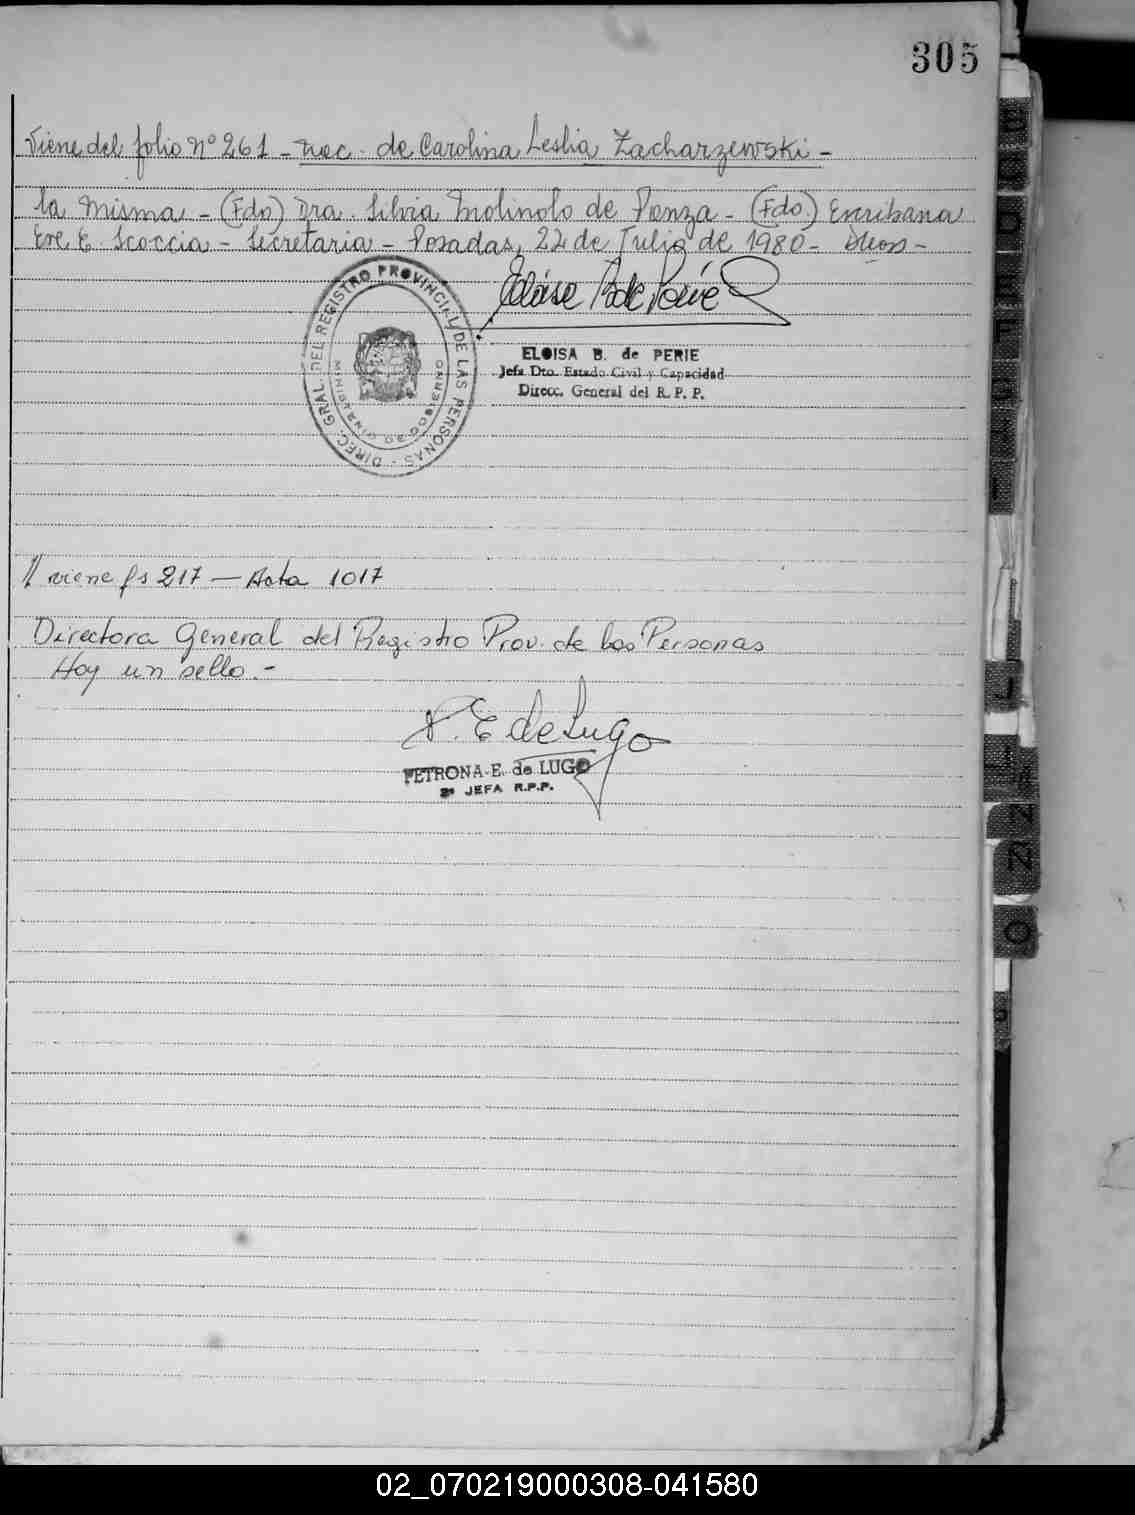 305
Viene del folio nº 261 - nac. de Carolina Leslia Zacharzewski -
la misma - (Fdo) Dra. Silvia Molinolo de Ponza - (Fdo.) Escribana
Eve E. Scoccia - Secretaria - Posadas, 22 de Julio de 1980 -
DIREC. GRAL. DEL REGISTRO PROVINCIAL DE LAS PERSONAS
MINISTERIO DE GOBIERNO
ELOISA B. de PERIE
Jefa Dto. Estado Civil y Capacidad
Direcc. General del R. P. P.
// viene fs 217 — Acta 1017
Directora General del Registro Prov. de las Personas
Hay un sello. -
P. E de Lugo
PETRONA E. de LUGO
2ª JEFA R.P.P.
B
D
E
F
G
H
I
J
L
M
N
Ñ
O
P
02_070219000308-041580